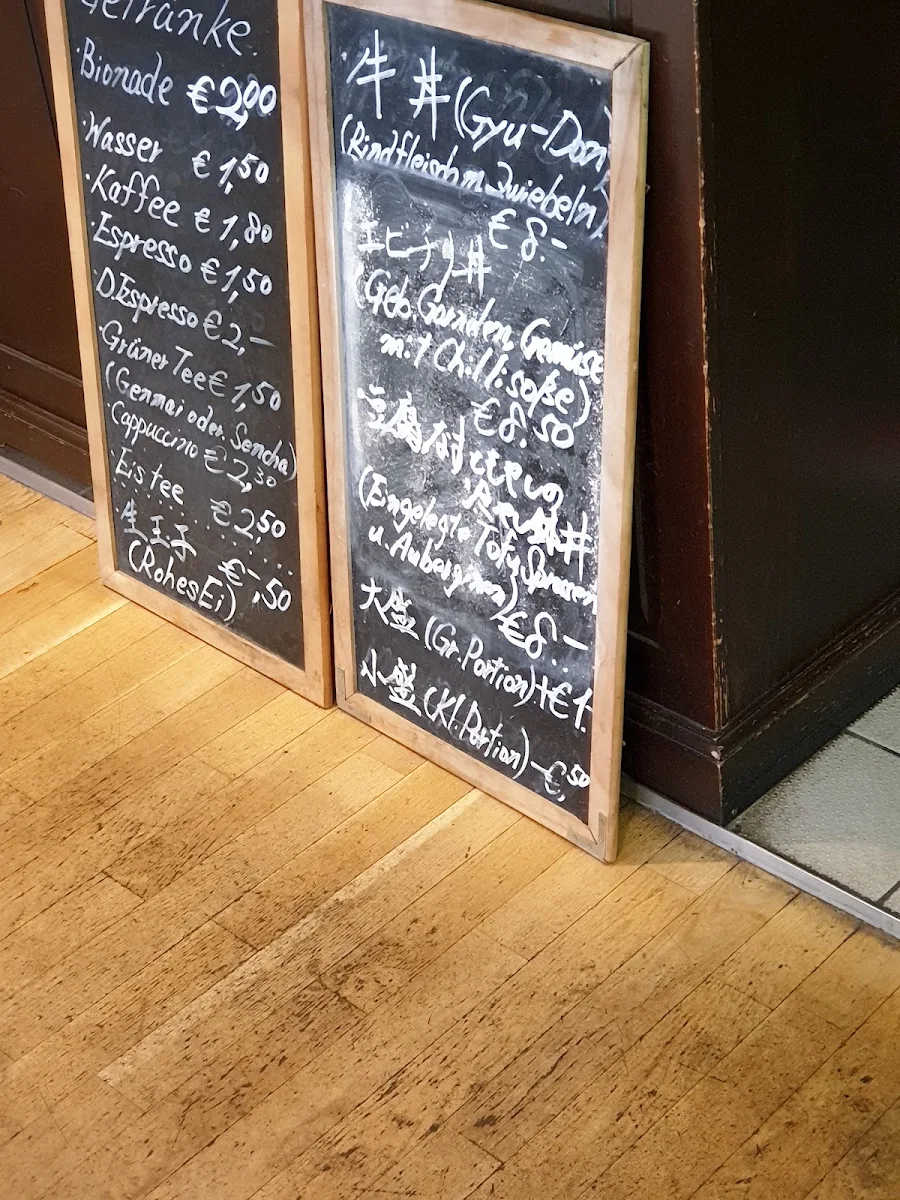 Getränke
·Bionade €2,00
·Wasser €1,50
·Kaffee €1,80
·Espresso €1,50
·D.Espresso €2,-
·Grüner Tee €1,50
(Genmai oder Sencha)
·Cappuccino €2,30
·Eistee €2,50
·生玉子 €-,50
(Rohes Ei)
·牛丼 (Gyu-Don)
(Rindfleisch m. Zwiebeln)
€8.-
·エビチリ丼
(Geb. Garnelen, Gemüse
mit Chillisoße)
€8.50
·豆腐
丼
(Eingelegte Tofu, Sprossen
u. Auberginen) €8.-
大盛 (Gr. Portion) +€1.-
小盛 (Kl. Portion) -€,50